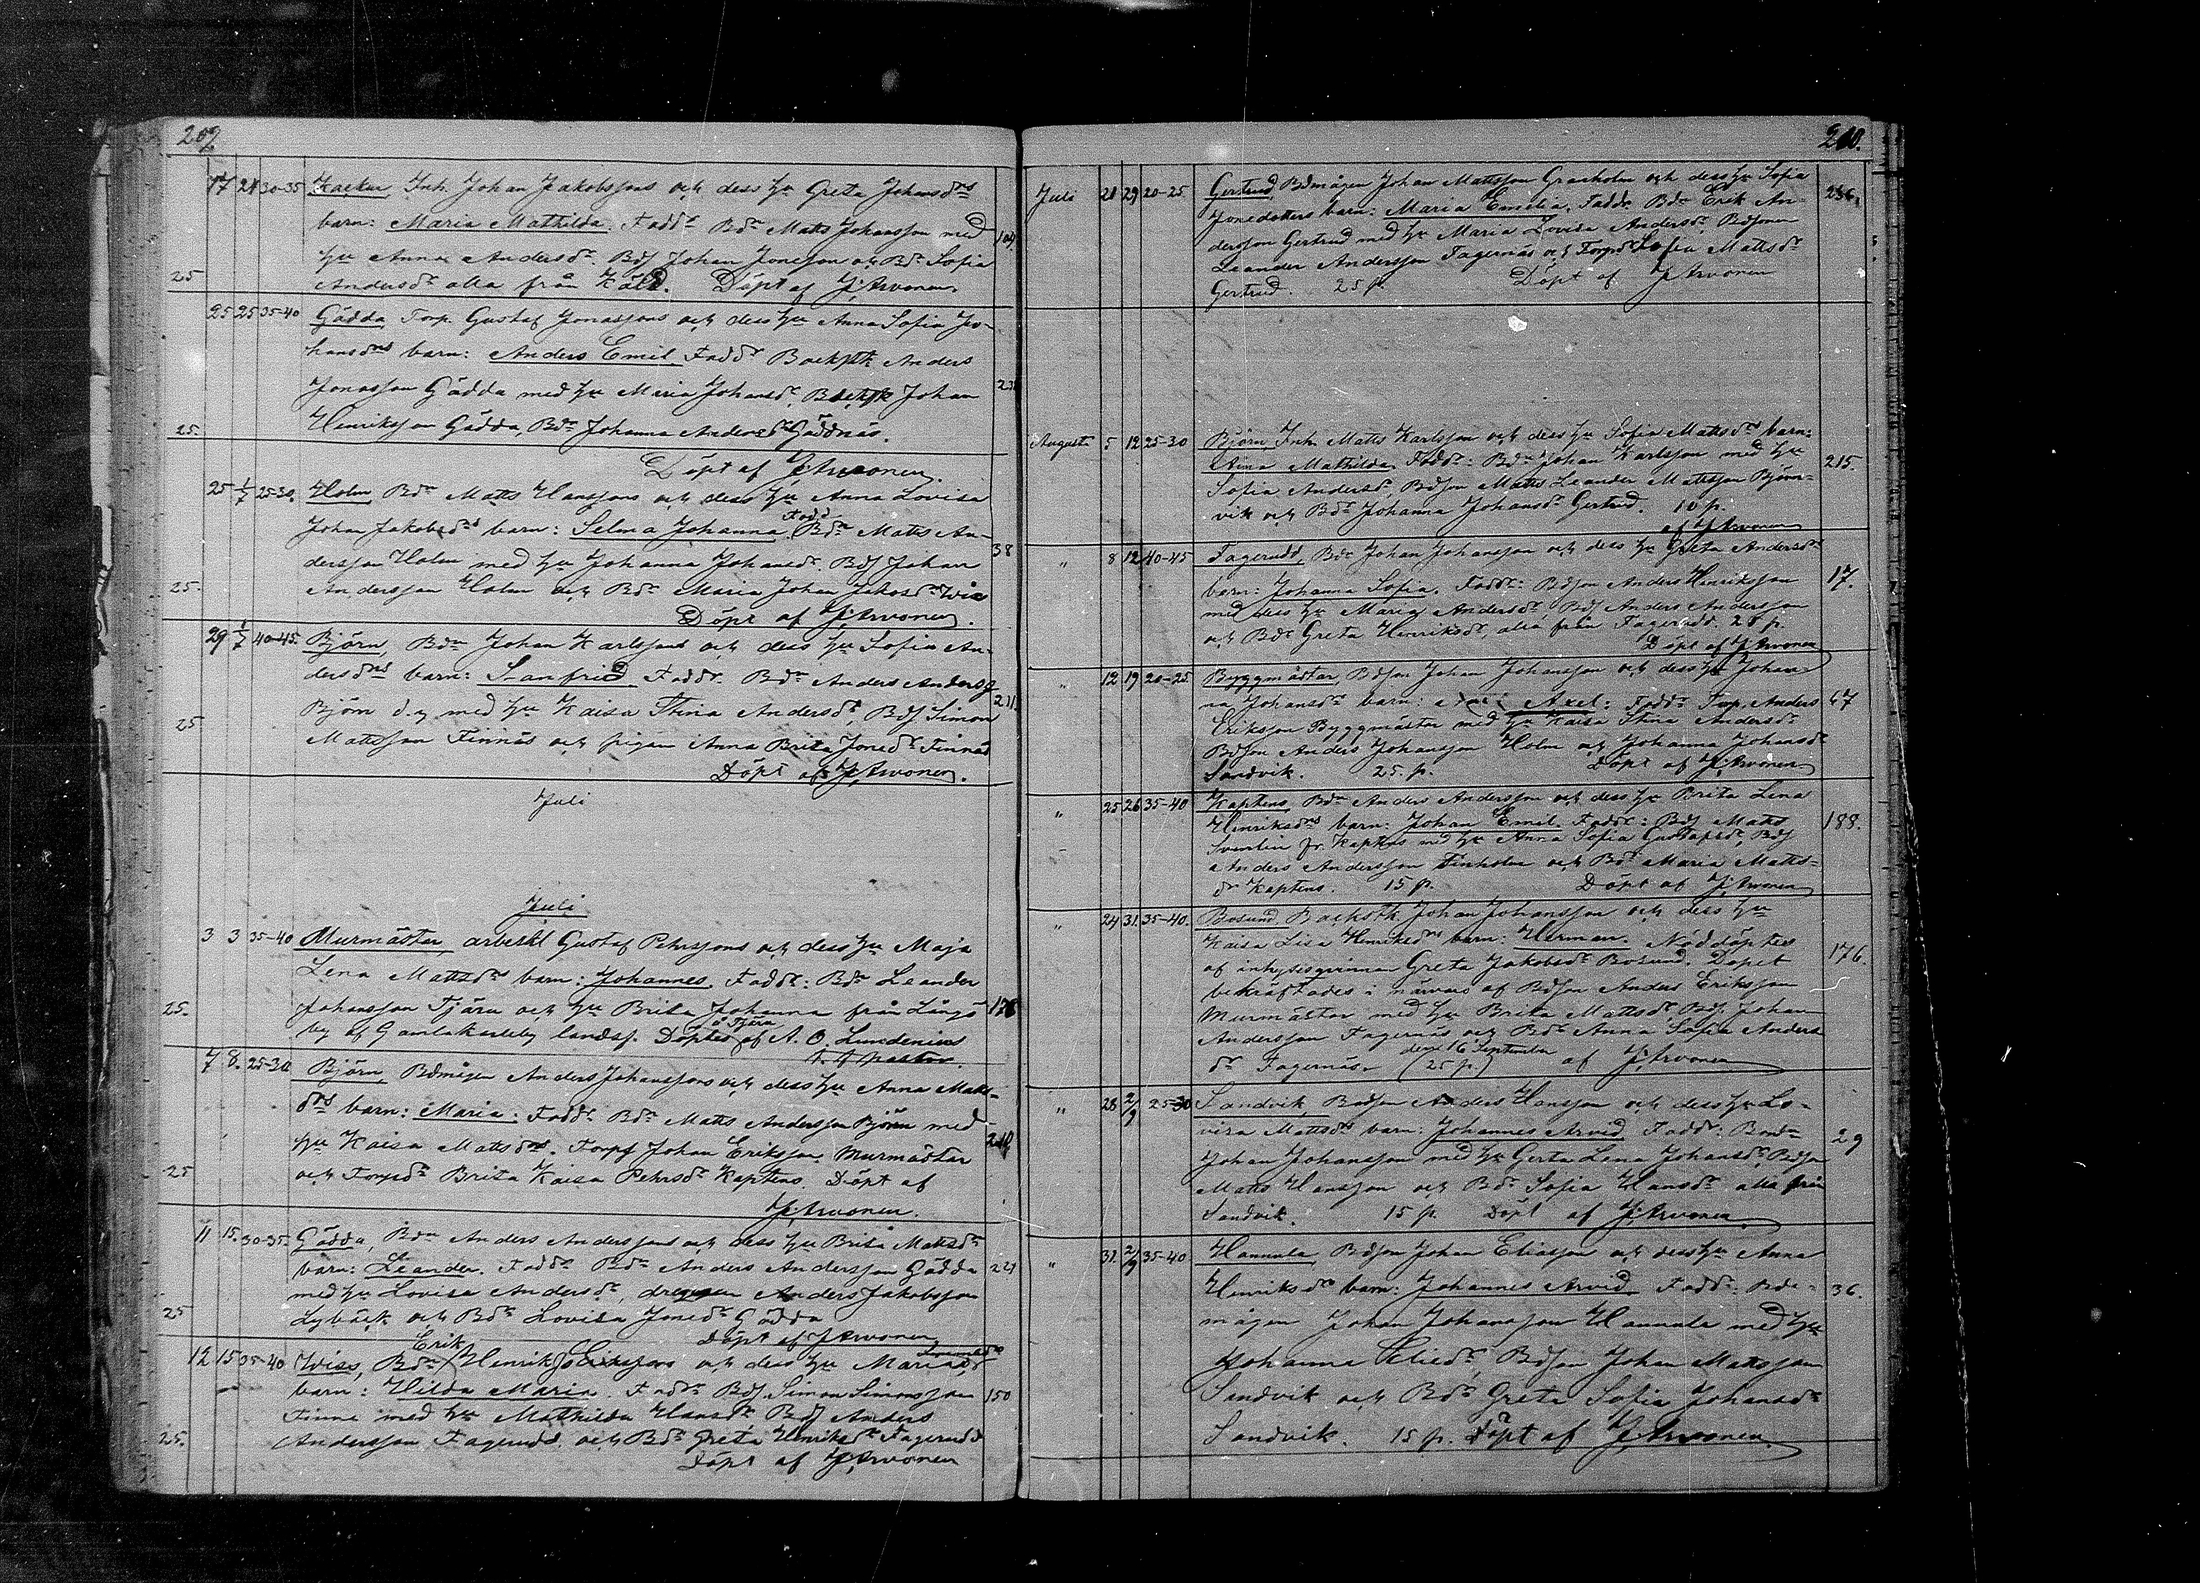 202
17 21 30-35 Inh. Johan Jakobssons och dess hu Greta Johansdrs
barn: Maria Mathilda. Faddr Bdn Matts Johansson med
104
hu Anna Andersdr, Bds Johan Jonsson och Bdr Sofia
25 Andersdr alla från Döpt af J. Arvonen.
25 25 35-40 Gädda Torp. Gustaf Jonassons och dess hu Anna Sofia Jo-
hansdrs barn: Anders Emil. Faddr Backstk Anders
Jonasson Gädda med hu Maria Johansdr, Backstk Johan
25. Henriksson Gädda, Bdr Johanna Andersdr Gäddnäs.
Döpt af J. Arvonen.
25 1/7 25-30. Holm Bdn Matts Hanssons och dess hu Anna Lovisa
Johan Jakobsdrs barn: Selma Johanna. Fadd. Bdn Matts An-
38
dersson Holm med hu Johanna Johansdr. Bds Johan
25. Andersson Holm och Bdr Maria Johan Jakobsdr Wiss
Döpt af J. Arvonen.
29 1/7 40-45. Björn, Bdn Johan Karlssons och dess hu Sofia An-
dersdrs barn: Sanfrid. Faddr. Bdn Anders Anderss
211.
Björn d.y. med hu Kaisa Stina Andersdr, Bds Simon
25 Mattsson Finnäs och pigan Anna Brita Jonsdr Finnäs
Döpt af J. Arvonen.
Juli
Juli
3 3 35-40 Murmästar, arbeskl Gustaf Pehrssons och dess hu Maja
Lena Mattsdrs barn: Johannes. Faddr: Bdn Leander
25. Johansson Tjäru och hu Brita Johanna från Långö
178
by af Gamlakarleby landsf. Döptes å Tjäru af A. O. Lundenius
t. f. pastor.
7 8. 25-30. Björn, Bdmågen Anders Johanssons och dess hu Anna Matts-
drs barn: Maria. Faddr. Bdn Matts Andersson Björn med
210
hu Kaisa Mattsdrs. Torps Johan Eriksson Murmästar
25 och Torpdr Brita Kaisa Pehrsdr Kaptens. Döpt af
J. Arvonen.
11 15. 30-35. Gädda, Bdn Anders Anderssons och dess hu Brita Mattsdr
barn: Leander. Faddr Bdn Anders Andersson Gädda
221
med hu Lovisa Andersdr, drengen Anders Jakobsson
25 Lybäck och Bdr Lovisa Jonsdr Gädda
Döpt af J. Arvonen
12 15 35-40 Wiss, Bdn Erik Henrik Erikssons och dess hu Maria
barn: Hilda Maria. Faddr Bds Simon Simonsson
150
Finne med hu Mathilda Hansdr, Bds Anders
25. Andersson Fagerudd, och Bdr Greta Henriksdr Fagerudd
Döpt af J. Arvonen
210.
Juli 21 29 20-25 Gertrud, Bdmågen Johan Mattsson Grasholm och dess hu Sofia
236.
Jonsdotters barn: Maria Emelia. Faddr. Bdn Erik An-
dersson Gertrud med hu Maria Lovisa Andersdr, Bdsonen
Leander Andersson Fagernäs och Torpdr Sofia Mattsdr
Gertrud. 25 p. Döpt af J. Arvonen
Augusti 5 12 25-30 Björn, Inh. Matts Karlsson och dess hu Sofia Mattsdrs barn:
Aina Mathilda. Faddr: Bdn Johan Karlsson med hu
215.
Sofia Andersdr, Bdson Matts Leander Mattsson Björn-
vik och Bdr Johanna Johansdr Gertrud. 10 p.
af J. Arvonen
" 8 12 40-45 Fagerudd, Bdn Johan Johansson och dess hu Greta Andersdr
barn: Johanna Sofia. Faddr: Bdson Anders Henriksson
17.
med dess hu Maria Andersdr Bds Anders Andersson
och Bdr Greta Henriksdr, alla från Fagerudd. 25 p.
Döpt af J. Arvonen
" 12 19 20-25 Byggmästar, Bdson Johan Johansson och dess hu Johan-
na Johansdr barn: Axel: Faddr Torp. Anders
67
Eriksson Byggmästar med hu Kaisa Stina Andersdr
Bdson Anders Johansson Holm och Johanna Johansdr
Sandvik. 25. p. Döpt af J. Arvonen
" 25 26 35-40 Kaptens, Bdn Anders Andersson och dess hu Brita Lena
Henriksdrs barn: Johan Emil. Faddr: Bds Matts
188.
fr. Kaptens med hu Anna Sofia Gustafsdr, Bds
Anders Andersson Finholm och Bdr Maria Matts-
dr Kaptens. 15 p. Döpt af J. Arvonen
" 24 31. 35-40. Bosund Backstk Johan Johansson och dess hu
Kaisa Lisa Henriksdrs barn: Herman. Nöddöptes
af inhysesqvinnan Greta Jakobsdr Bosund. Dopet
176.
bekräftades i närvaro af Bdson Anders Eriksson
Murmästar med hu Brita Mattsdr Bds Johan
Andersson Fagernäs och Bdr Anna Sofia Anders
dr Fagernäs (25 p.) den 16 September af J. Arvonen
" 28 2/9 25-30 Sandvik, Bodson Anders Hansson och dess hu Lo-
visa Mattsdrs barn: Johannes Arvid. Faddr: Bondn
29
Johan Johansson med hu Gerta Lena Johansdr, Bdson
Matts Hansson och Bdr Sofia Hansdr alla från
Sandvik. 15 p. Döpt af J. Arvonen
" 31. 2/9 35-40 Hannula, Bdson Johan Eliasson och dess hu Anna
Henriksdrs barn: Johannes Arvid. Faddr: Bde-
36.
mågen Johan Johansson Hannula med hu
Johanna Eliedr, Bdson Johan Mattsson
Sandvik och Bdr Greta Sofia Johansdr
Sandvik. 15 p. Döpt af J. Arvonen.